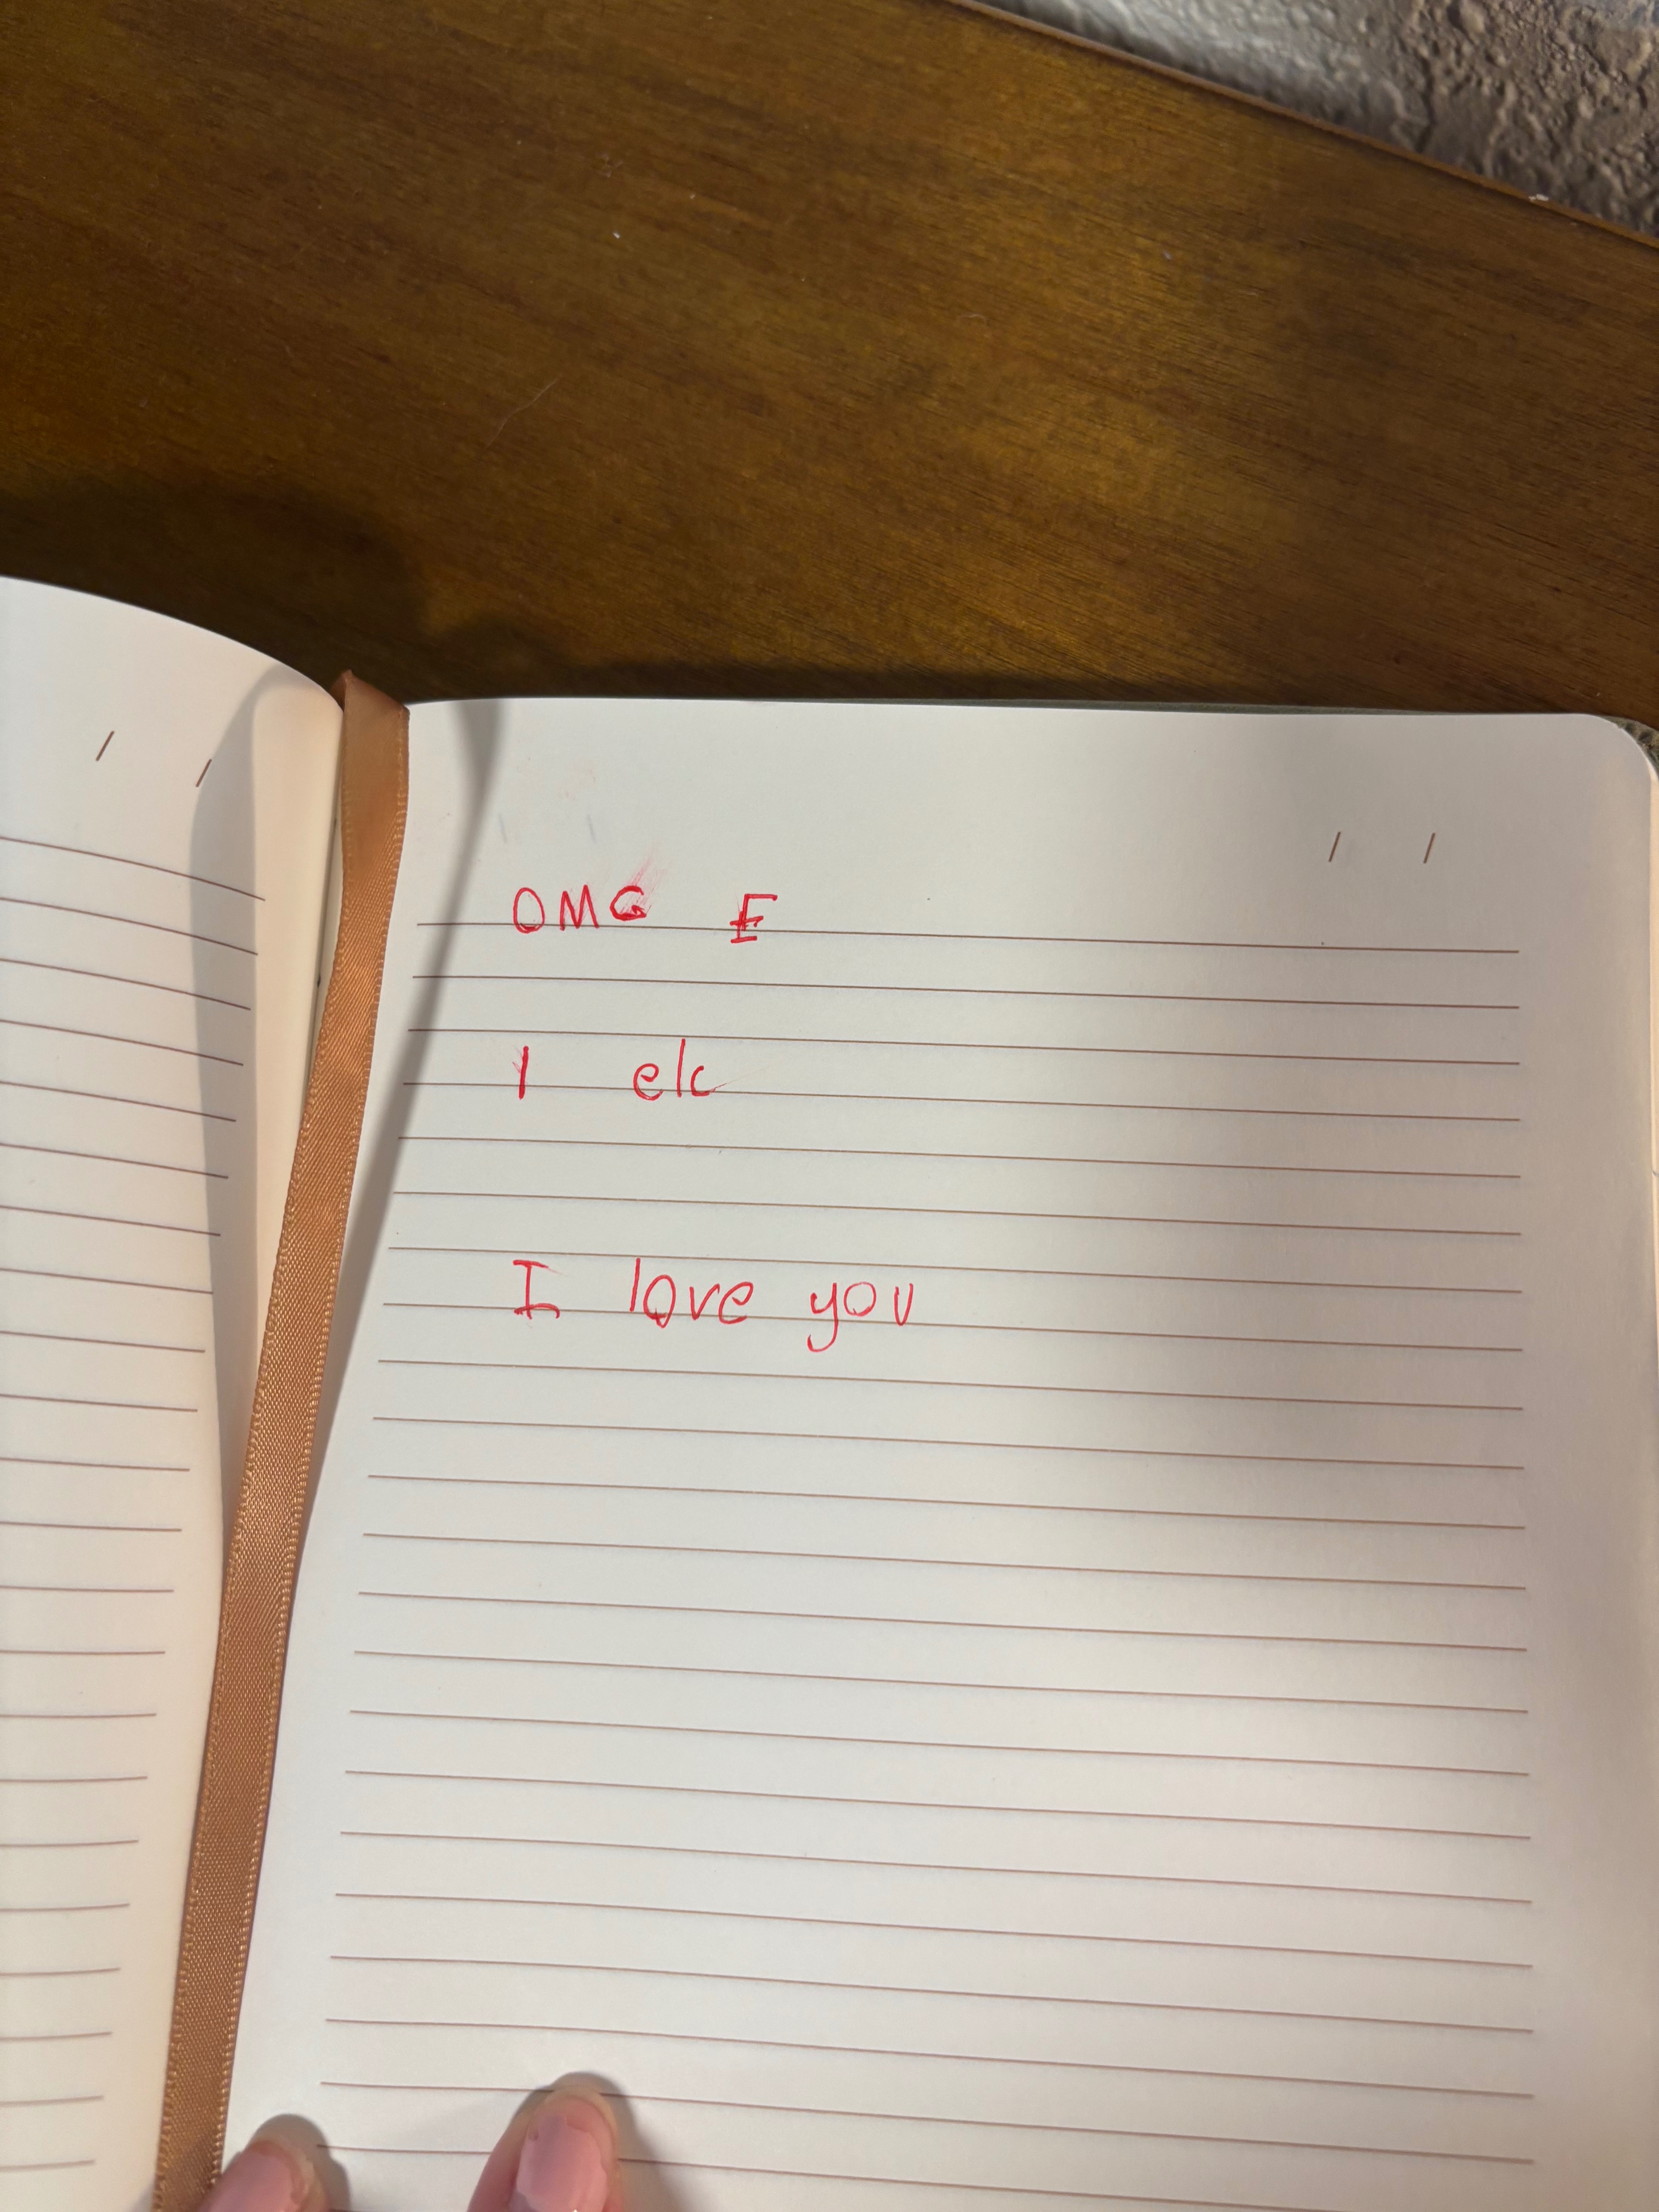 OMG E
I elc
I love you